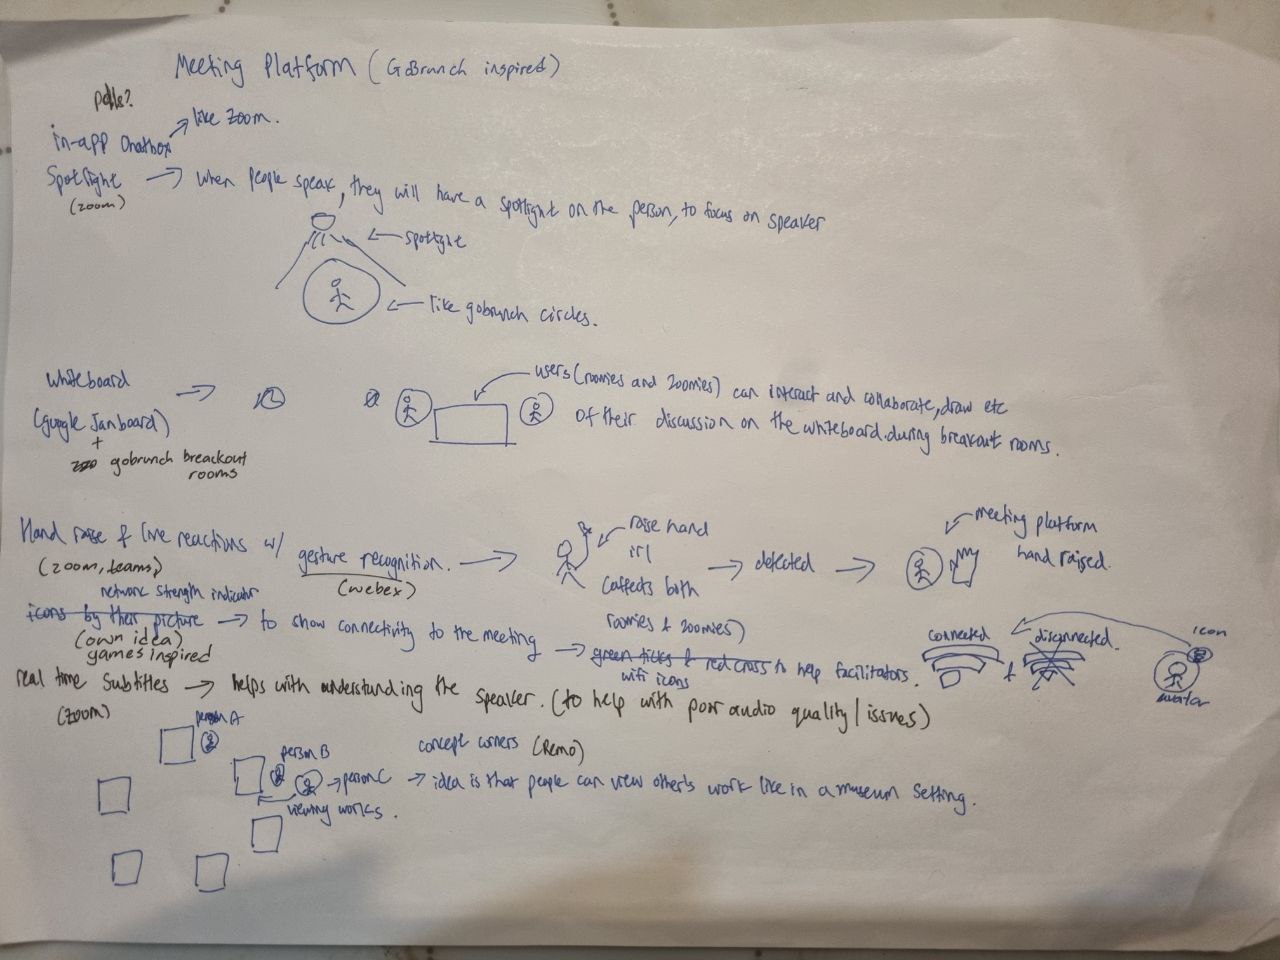 Meeting Platform (GoBrunch inspired)
polls?
in-app chatbox → like zoom.
Spotlight → when people speak, they will have a spotlight on the person, to focus on speaker
(zoom)
← spotlight
← like gobrunch circles.
whiteboard →
(google Jamboard)
+
gobrunch breackout
rooms
users (roomies and zoomies) can interact and collaborate, draw etc
of their discussion on the whiteboard during breakout rooms.
Hand raise & live reactions w/ gesture recognition. →
(zoom, teams)
(webex)
raise hand
irl
(affects both
roomies & zoomies)
→ detected →
meeting platform
hand raised.
network strength indicator
icons by their picture → to show connectivity to the meeting → green ticks & red cross to help facilitators.
wifi icons
(own idea)
games inspired
connected & disconnected.
icon
avatar
real time subtitles → helps with understanding the speaker. (to help with poor audio quality/issues)
(zoom)
person A
person B
→ person C
viewing works.
concept corners (Remo)
→ idea is that people can view other's work like in a museum setting.